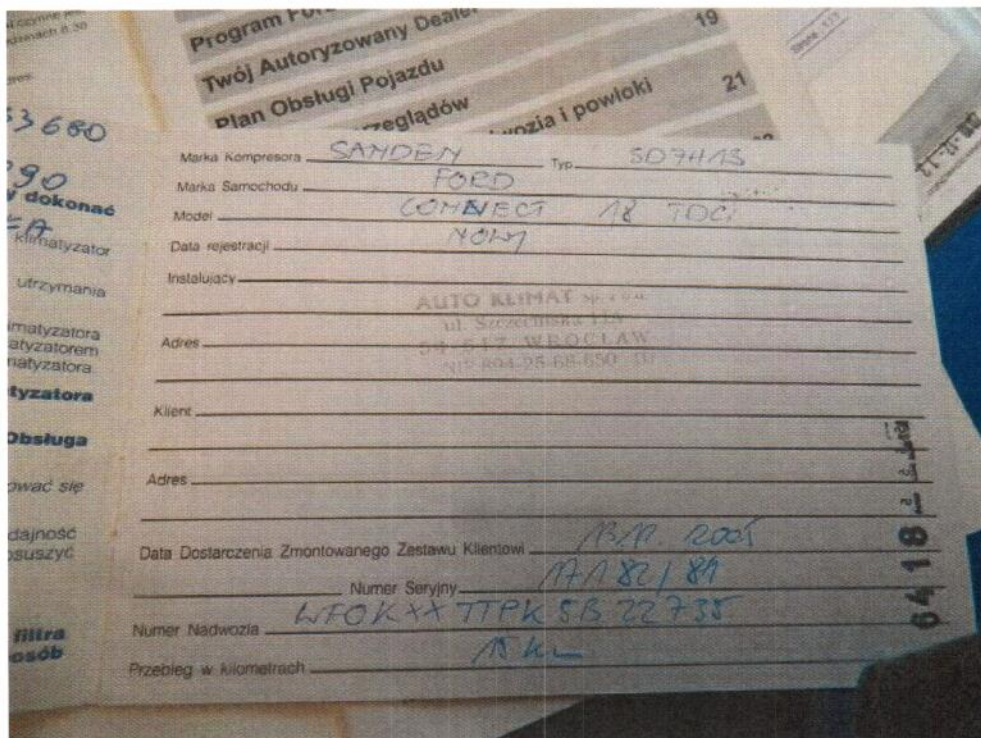 Program
Twój Autoryzowany Dealer
Plan Obsługi Pojazdu
19
21
53680
90
dokonać
klimatyzator
utrzymania
imatyzatora
atyzatorem
natyzatora
tyzatora
Obsługa
ować się
dajność
osuszyć
filtra
osób
Marka Kompresora SANDEN Typ SD7H15
Marka Samochodu FORD
Model CONNECT 18 TDCi
Data rejestracji NOWY
Instalujący
AUTO KLIMAT
WROCŁAW
Adres
Klient
Adres
Data Dostarczenia Zmontowanego Zestawu Klientowi 2005
Numer Seryjny 17182/81
Numer Nadwozia WFOKXXTTPK5B22735
Przebieg w kilometrach 15 km
6418